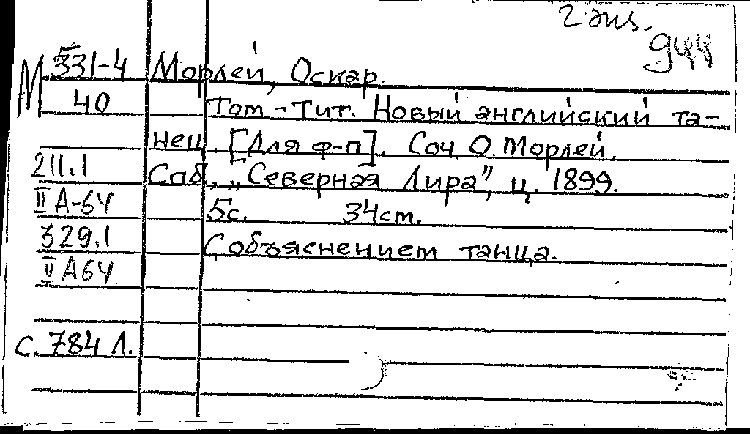 2 экз.
944
М 331-4 Морлей, Оскар.
40 Том-Тит. Новый английский та-
нец. [Для ф-п]. Соч. О. Морлей.
211.1 Спб, „Северная Лира”, ц. 1899.
II А-64 5с. 34 см.
329.1 С объяснением танца.
II А64
с. 784 Л.